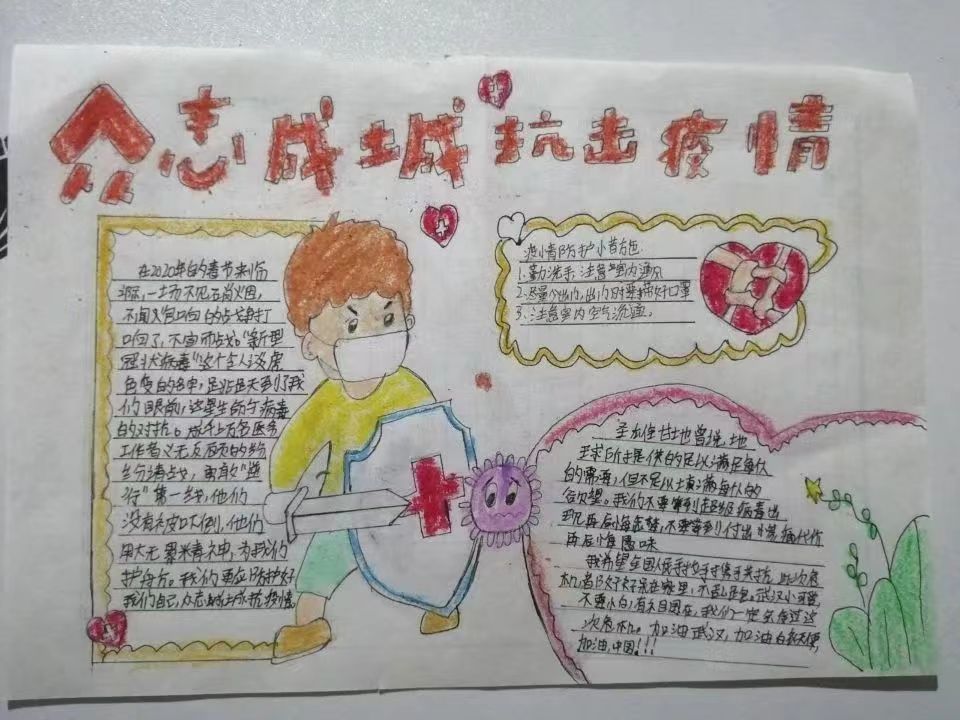 众志成城抗击疫情
在2020年的春节来临
之际,一场不见硝烟,
不闻炮响的战争打
响了,不宣而战。“新型
冠状病毒”这个令人谈虎
色变的名字,
们眼前,这是生命与病毒
的对抗。成千上万名医务
工作者义无反顾的纷
纷请战,勇敢“逆
行”第一线,他们
没有被吓倒,他们
大无畏 精神,为我们
护航。我们更应防护好
我们自己,众志成城抗疫情
疫情防护小
1.勤洗手,注意室内通风
2.尽量不出门,出门时要带好口罩
3.注意室内空气流通。
圣雄甘地曾说:地
球所提供的足以满足每人
的需要,但不足以填满每人的
欲望。我们不要等到超级病毒出
现再后悔 ,不要等到付出 代价
再后悔愚昧
我希望全国人民手拉手 携手共抗此次危
机,自 好好呆在家里,不乱 。武汉小可爱,
不要怕,有我们 在,我们一定会度过这
次危机。加油武汉,加油白衣天使,
加油,中国!!!